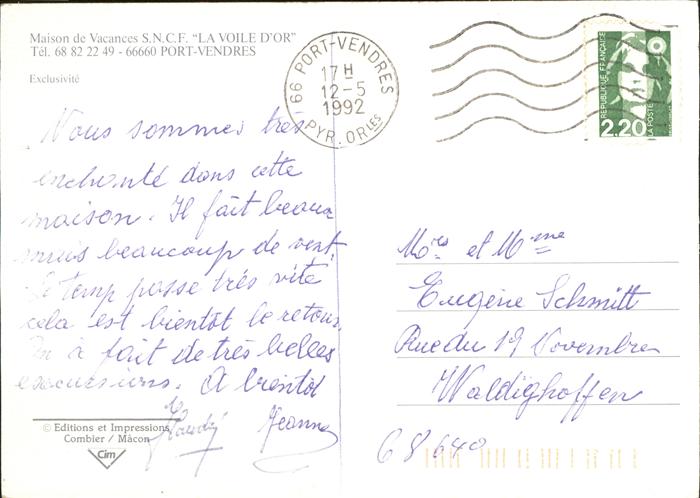 Maison de Vacances S.N.C.F. “LA VOILE D'OR”
Tél. 68 82 22 49 - 66660 PORT-VENDRES
Exclusivité
66 PORT-VENDRES
17 H
12-5
1992
PYR. ORLES
REPUBLIQUE FRANÇAISE
2,20
LA POSTE
Nous sommes très
enchanté dans cette
maison. Il fait beau
mais beaucoup de vent.
Le temp passe très vite
cela est bientôt le retour.
On à fait de très belles
excursions. A bientôt
Jeanne
Mrs et Mme
Eugène Schmitt
Rue du 19 Novembre
Waldighoffen
68640
© Editions et Impressions
Combier / Mâcon
Cim